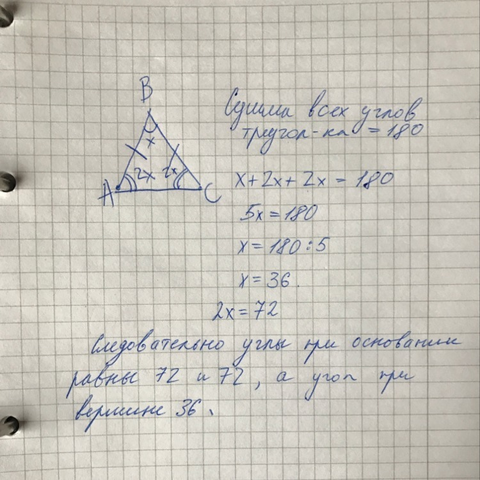 B
Сумма всех углов
треугол-ка = 180
x
A 2x 2x C
x + 2x + 2x = 180
5x = 180
x = 180 : 5
x = 36.
2x = 72
Следовательно углы при основании
равны 72 и 72, а угол при
вершине 36.